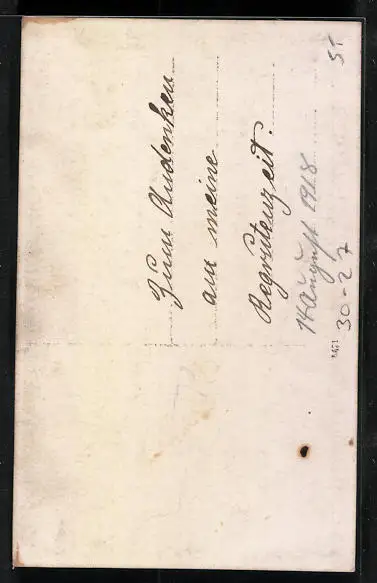 Zum Andenken
an meine
Regrutenzeit.
14 August 1918
30-27